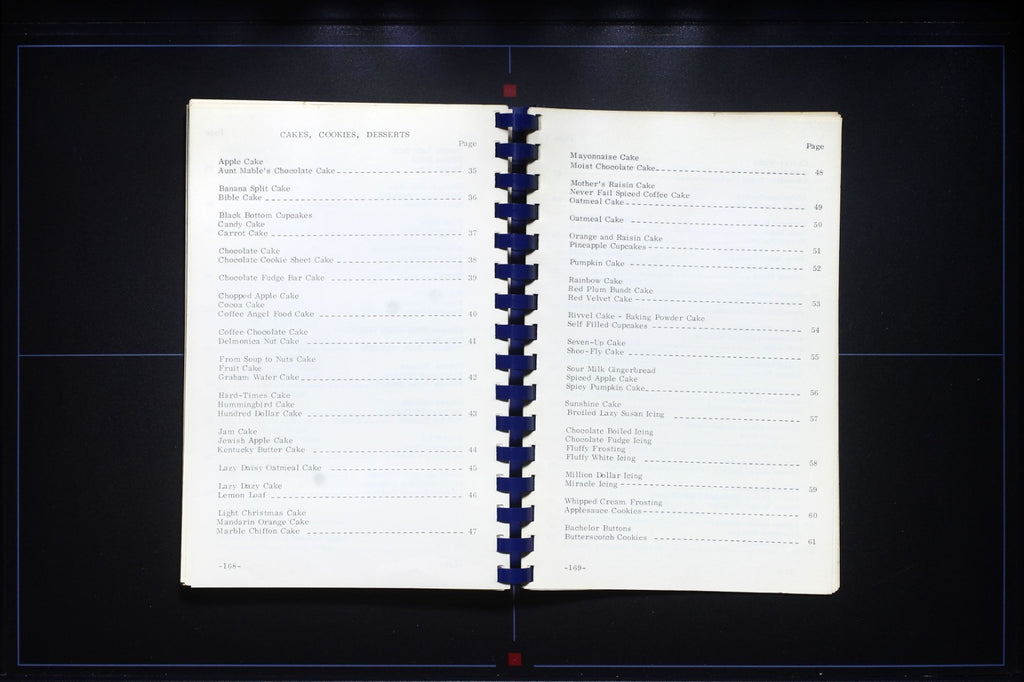 CAKES, COOKIES, DESSERTS
Page
Apple Cake
Aunt Mable's Chocolate Cake 35
Banana Split Cake
Bible Cake 36
Black Bottom Cupcakes
Candy Cake
Carrot Cake 37
Chocolate Cake
Chocolate Cookie Sheet Cake 38
Chocolate Fudge Bar Cake 39
Chopped Apple Cake
Cocoa Cake
Coffee Angel Food Cake 40
Coffee Chocolate Cake
Delmonica Nut Cake 41
From Soup to Nuts Cake
Fruit Cake
Graham Wafer Cake 42
Hard-Times Cake
Hummingbird Cake
Hundred Dollar Cake 43
Jam Cake
Jewish Apple Cake
Kentucky Butter Cake 44
Lazy Daisy Oatmeal Cake 45
Lazy Dazy Cake
Lemon Loaf 46
Light Christmas Cake
Mandarin Orange Cake
Marble Chiffon Cake 47
-168-
Page
Mayonnaise Cake
Moist Chocolate Cake 48
Mother's Raisin Cake
Never Fail Spiced Coffee Cake
Oatmeal Cake 49
Oatmeal Cake 50
Orange and Raisin Cake
Pineapple Cupcakes 51
Pumpkin Cake 52
Rainbow Cake
Red Plum Bundt Cake
Red Velvet Cake 53
Rivvel Cake - Baking Powder Cake
Self Filled Cupcakes 54
Seven-Up Cake
Shoo-Fly Cake 55
Sour Milk Gingerbread
Spiced Apple Cake
Spicy Pumpkin Cake 56
Sunshine Cake
Broiled Lazy Susan Icing 57
Chocolate Boiled Icing
Chocolate Fudge Icing
Fluffy Frosting
Fluffy White Icing 58
Million Dollar Icing
Miracle Icing 59
Whipped Cream Frosting
Applesauce Cookies 60
Bachelor Buttons
Butterscotch Cookies 61
-169-